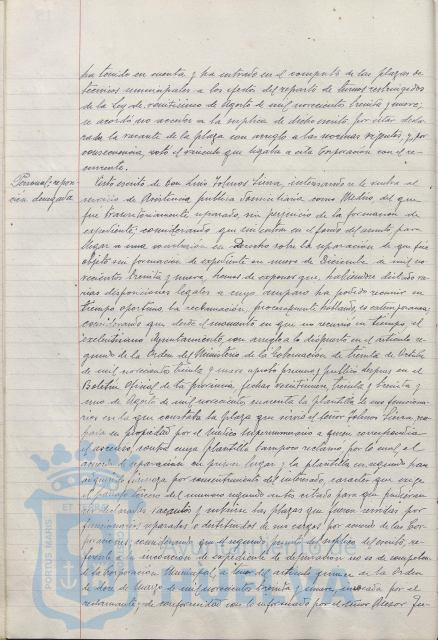 ha tenido en cuenta y ha entrado en el computo de las plazas de
técnicos municipales a los efectos del reparto de turnos restringidos
de la Ley de veinticinco de Agosto de mil novecientos treinta y nueve;
se acordó no acceder a la súplica de dicho escrito por estar decla-
rada la vacante de la plaza con arreglo a las normas vigentes, y, por
consecuencia, roto el vínculo que ligaba a esta Corporación con el re-
currente.
Personal: reposi-
ción denegada
Visto escrito de Don Luis Tolmos Siura, interesando se le vuelva al
servicio de Asistencia pública domiciliaria como Médico del que
fue transitoriamente separado, sin perjuicio de la formación de
expediente; considerando que sin entrar en el fondo del asunto para
llegar a una conclusión en Derecho sobre la separación de que fué
objeto sin formación de expediente en nueve de Diciembre de mil no-
vecientos treinta y nueve, hemos de exponer que, habiéndose dictado va-
rias disposiciones legales a cuyo amparo ha podido recurrir en
tiempo oportuno la reclamación, procesalmente hablando, es extemporanea;
considerando que desde el momento en que no recurrió en tiempo, el
excelentísimo Ayuntamiento, con arreglo a lo dispuesto en el artículo se-
gundo de la Orden del Ministerio de la Gobernación de treinta de Octubre
de mil novecientos treinta y nueve aprobó primero y publicó después en el
Boletín Oficial de la provincia, fechas veintinueve, treinta y treinta y
uno de Agosto de mil novecientos cuarenta la plantilla de sus funciona-
rios en la que constaba la plaza que sirvió el señor Tolmos Siura, ocu-
pada en propiedad por el médico supernumerario a quien correspondía
el ascenso, contra cuya plantilla tampoco reclamó por lo cual el
acuerdo de separación en primer lugar y la plantilla en segundo han
adquirido firmeza por consentimiento del interesado, carácter que exige
el párrafo tercero del número segundo antes citado para que pudieran
declararse vacantes y cubrirse las plazas que fueron servidas por
funcionarios separados o destituidos de sus cargos por acuerdo de las Cor-
poraciones; considerando que el segundo punto del suplico del escrito, re-
ferente a la incoación de expediente de depuración no es de competencia
de la Corporación Municipal, a tenor del artículo quince de la Orden
de doce de Marzo de mil novecientos treinta y nueve, invocada por el
reclamante; de conformidad con lo informado por el señor Asesor Ju-
PORTUS MARIS